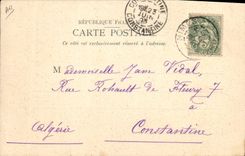 RÉPUBLIQUE FRA
CARTE POSTALE
Ce côté est exclusivement réservé à l'adresse.
CONSTANTINE
M ademoiselle Jane Vidal,
Rue Rohault de Fleury 7
à
Algérie Constantine